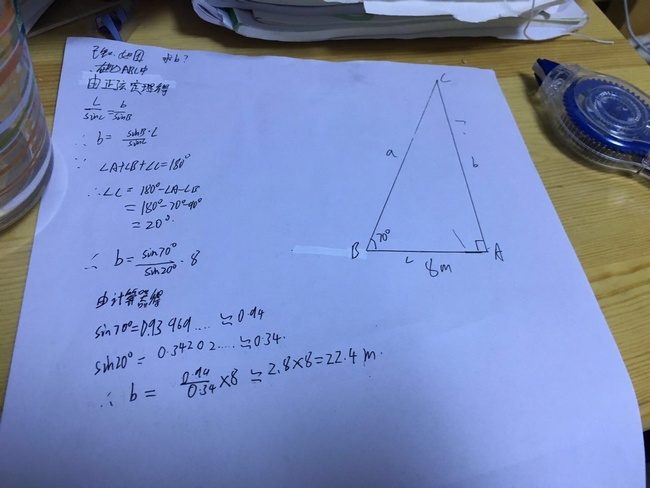 已知如图 求b?
∴在△ABC中
由正弦定理得
L/sinL = b/sinB
∴ b = sinB/sinL · L
∵ ∠A+∠B+∠C=180°
∴∠C = 180°-∠A-∠B
= 180°-70°-90°
= 20°.
∴ b = sin70°/sin20° · 8
由计算器得
sin70°=0.93969.... ≒ 0.94
sin20°= 0.34202.... ≒0.34.
∴ b = 0.94/0.34 ×8 ≒ 2.8×8=22.4 m.
C
a
?
b
B
70°
A
L
8m